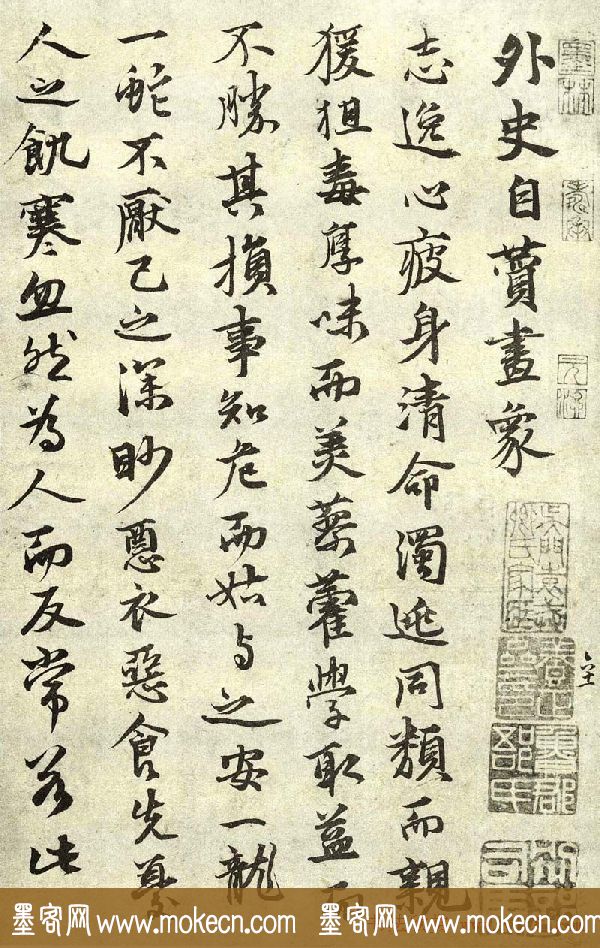 墨林
外史自贊畫象
志逸心疲身清命濁逃同類而親
猨狙毒厚味而美藜藿學取益而
不勝其損事知危而姑与之安一龍
一蛇不厭己之深眇惡衣惡食先
人之飢寒忽然為人而反常若此
墨客网 www.mokecn.com 墨客网 www.mokecn.com